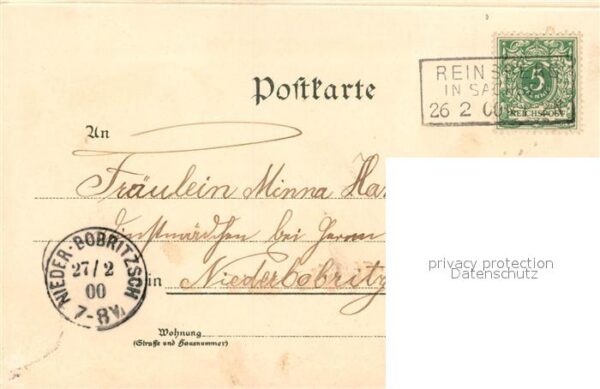 REINSBERG
IN SAC
26 2 00
5
REICHSPOST
Postkarte
An
Fräulein Minna Ha
Dienstmädchen bei Herrn
in Niederbobritz
Wohnung
(Straße und Hausnummer)
NIEDER-BOBRITZSCH
27/2
00
7-8V.
privacy protection
Datenschutz